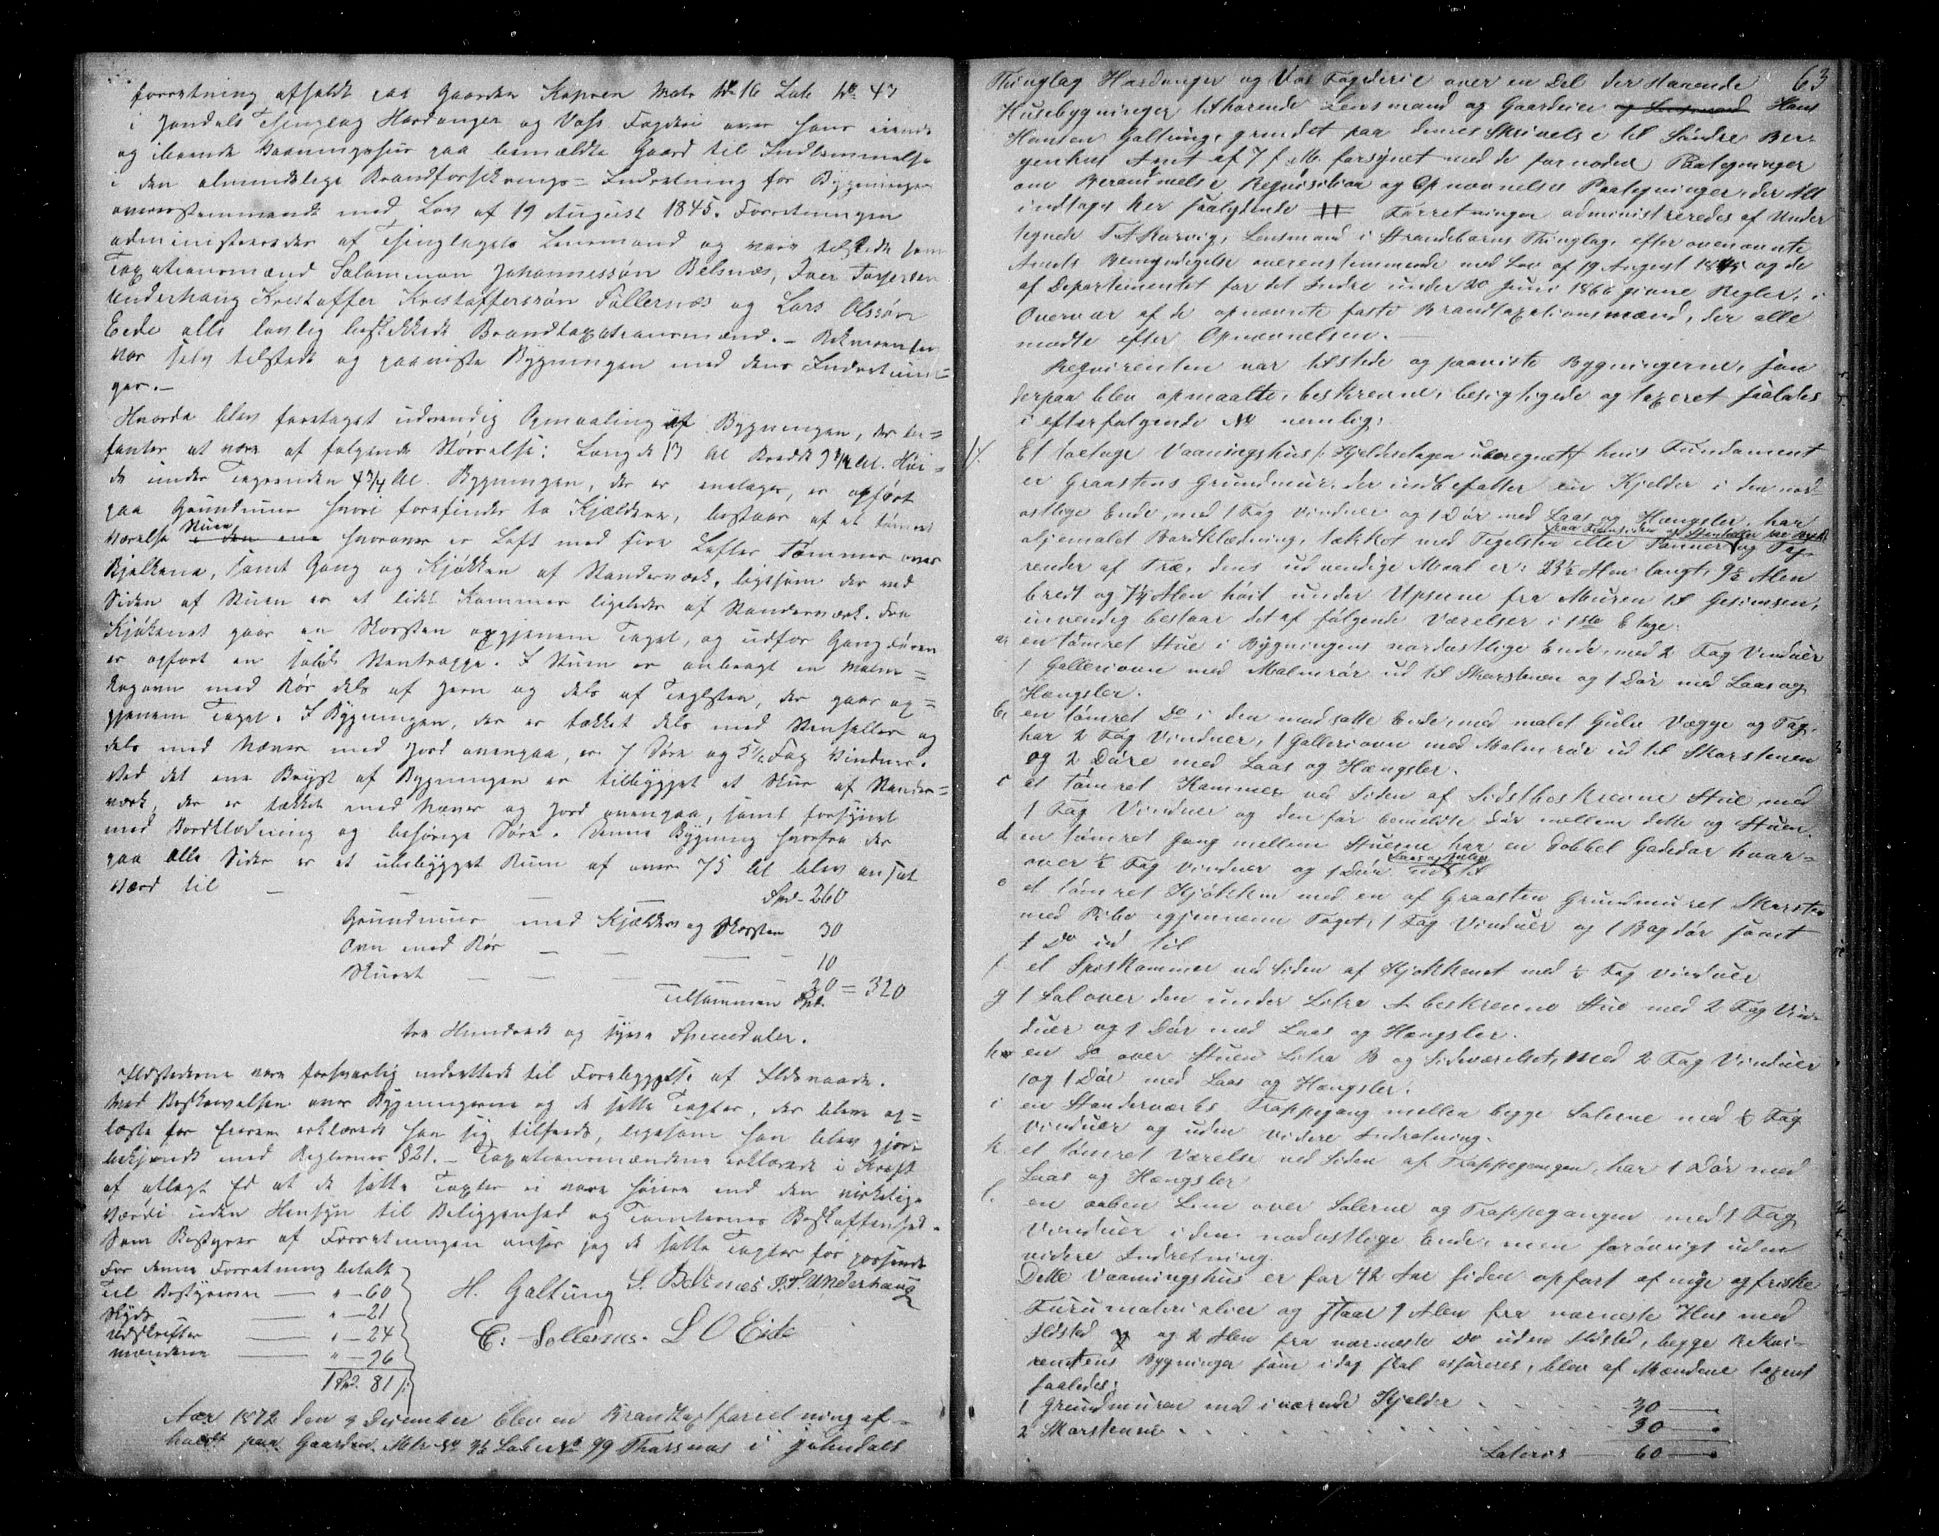 forretning afholdt paa Gaarden Kopren Matr No 16 Løbe No 43
i Jondals Thinglag Hardanger og Voss Fogderi over hans eiende
og iboende Vaaningshuus paa bemældte Gaard til Indlemmelse
i den almindelige Brandforsikrings-Indretning for Bygninger
overensstemmende med Lov af 19 August 1845. Forretningen
administreredes af Thinglagets Lensmand og vare tilstede som
Taxationsmænd Salammon Johannessøn Belsnæs, Iver Torgersen
Underhaug Kristoffer Kristofferssøn Sollesnæs og Lars Olssøn
Eide alle lovlig beskikkede Brandtaxationsmænd. – Rekvirenten
var selv tilstede og paaviste Bygningen med dens Indretnin=
ger. –
Hvorda blev foretaget udvendig Opmaaling af Bygningen, der be=
fantes at være af følgende Størrelse: Længde 13 Al Bredde 9 3/4 Al. Høi=
de under Tagrenden 4 3/4 Al. Bygningen, der er eenetages, er opført
paa Grundmuur hvori forefindes to Kjældere, bestaar af et tømret
Værelse Stuen i den ene hvorover er Loft med fire Lofter Tømmer over
Bjelkene, samt Gang og Kjøkken af Standerværk, ligesom der ved
Siden af Stuen er et lidet Kammer ligeledes af Standerværk. Fra
Kjøkenet gaar en Skorsten opgjenem Taget, og udfor Gangdøren
er opført en solid Stentrappe. I Stuen er anbragt en Malm=
kogovn med Rør dels af Jern og dels af Teglsten, der gaar op=
gjenem Taget. I Bygningen, der er tækket dels med Stenheller og
dels med Næver med Jord ovenpaa, er 7 Døre og 5 1/2 Fag Vinduer.
Ved det ene Bryst af Bygningen er tilbygget et Skur af Stander=
værk, der er tækket med Næver og Jord ovenpaa, samt forsynet
med Bordklædning og behørige Døre. Denne Bygning hvorfra der
paa alle Sider er et ubebygget Rum af over 75 Al blev ansat
Værd til — Spd – 260
Grundmuur med Kjælder og Skorsten 30
Ovn med Rør — — — 10
Skuret — — — 20 = 320
Tilsammen Spd.
tre Hundrede og tyve Speciedaler.
Ildstederne vare forsvarlig indrettede til Forebyggelse af Ildsvaade.
Med Beskrivelsen over Bygningerne og de satte Taxter, der blev op=
læste for Eieren erklærede han sig tilfreds, ligesom han blev gjort
bekjendt med Reglernes § 21. – Taxationsmændene erklærede i Kraft
af aflagt Ed at de satte Taxter ei vare høiere end den virkelige
Værdi uden Hensyn til Beliggenhed og Tomternes Beskaffenhed.
Som Bestyrer af Forretningen anser jeg de satte Taxter for passende
For denne Forretning betalt
Til Bestyreren — " – 60
Skyds — " – 21
Udskrifter — " – 24
Mændene — " – 96
1 Spd. 81 s:
H. Galtung S. Belsnæs I. T. Underhaug
C. Sollesnæs. L O Eide
Aar 1872 den 9 December blev en Brandtaxtforretning af-
holdt paa Gaarden Mtr No 36 Løbe No 99 Thorsnæs i Johndals
63
Thinglag Hardanger og Vos Fogderie over en Del der staaende
Husebygninger tilhørende Lensmand og Gaardeier og Lensmand Hans
Hansen Galtung, grundet paa denes Skrivelse til Søndre Ber-
genhus Amt af 7 f. M. forsynet med de fornødne Paategninger
om Berammelse, Requisition og Opnævnelses Paategninger, der Alt
indtages her saalydende ++ Forretningen administreredes af Under
tegnede T. A. Karvig, Lensmand i Strandebarms Thinglag, efter ovennævnte
Amts Bemyndigelse overenstemmende med Lov af 19 August 1845 og de
af Departementet for det Indre under 20 Juni 1866 givne Regler, i
Overvær af de opnævnte faste Brandtaxationsmænd, der alle
mødte efter Opnævnelsen. —
Reqvirenten var tilstede og paaviste Bygningerne, som
derpaa blev opmaalte, beskrevne, besigtigede og taxeret saaledes
i efterfølgende No nemlig:
1. Et toetage Vaaningshus /: Kjeldsetagen uberegnet :/ hvis Fundament
er Graastens Grundmur, der indbefatter en Kjelder i den nord-
ostlige Ende, med 1 Fag Vinduer og 1 Dør med Laas og Hængsler, har
oljemalet Bordklædning, tækket med Tegelsten eller Panner paa Framsiden og Stenheller paa Bagsiden og Tag-
render af Træ, dens udvendige Maal er: 23 1/2 Alen langt, 9 1/2 Alen
bredt og 7 1/4 Alen høit under Upsene fra Muren til Gesimsen,
invendig bestaar det af følgende Værelser i 1ste Etage.
a. en tømret Stue i Bygningens nordostlige Ende, med 2 Fag Vinduer
1 Galleriovn med Malmrør ud til Skorstenen og 1 Dør med Laas og
Hængsler.
b. en tømret Do i den modsatte Ende, med malet Gulv Vægge og Tag,
har 2 Fag Vinduer, 1 Galleriovn med Malmrør ud til Skorstenen
og 2 Døre med Laas og Hængsler.
c et tømret Kammer ved Siden af sidstbeskrevne Stue med
1 Fag Vinduer og den før bemeldte Dør mellem dette og Stuen.
d en tømret Gang mellem Stuerne har en dobbel Gadedør hvor-
over 1/2 Fag Vinduer og 1 Dør Laas og Hængs ud til
e et tømret Kjøkken med en af Graasten Grundmuret Skorsten
med Pibe igjennem Taget, 1 Fag Vinduer og 1 Bagdør samt
1 Do ind til
f et Speskammer ved Siden af Kjøkkenet med 1/2 Fag Vinduer
g 1 Sal over den under Litra A beskrevne Stue med 2 Fag Vin-
duer og 1 Dør med Laas og Hængsler.
h. en Do over Stuen Litra B og Sideværelset, med 2 Fag Vinduer
og 1 Dør med Laas og Hængsler.
i en Standerværks Trappegang mellem begge Salerne med 1/2 Fag
Vinduer og uden videre Indretning.
k. et tømret Værelse ved Siden af Trappegangen, har 1 Dør med
Laas og Hængsler
l. en aaben Lem over Salerne og Trappegangen med 1 Fag
Vinduer i den nodostlige Ende, men forøvrigt uden
videre Indretning.
Dette Vaaningshus er for 42 Aar siden opført af nye og friske
Furumaterialier og staar 1 Alen fra nærmeste Hus med
Ildsted og 2 Alen fra nærmeste Do uden Ildsted, begge Rekvi-
rentens Bygninger som idag skal assureres, blev af Mændene taxeret
saaledes:
1 Grundmuren med iværende Kjelder . . . . 30 —
2 Skorstenene . . . . . . . 30 —
Lateris — 60 —